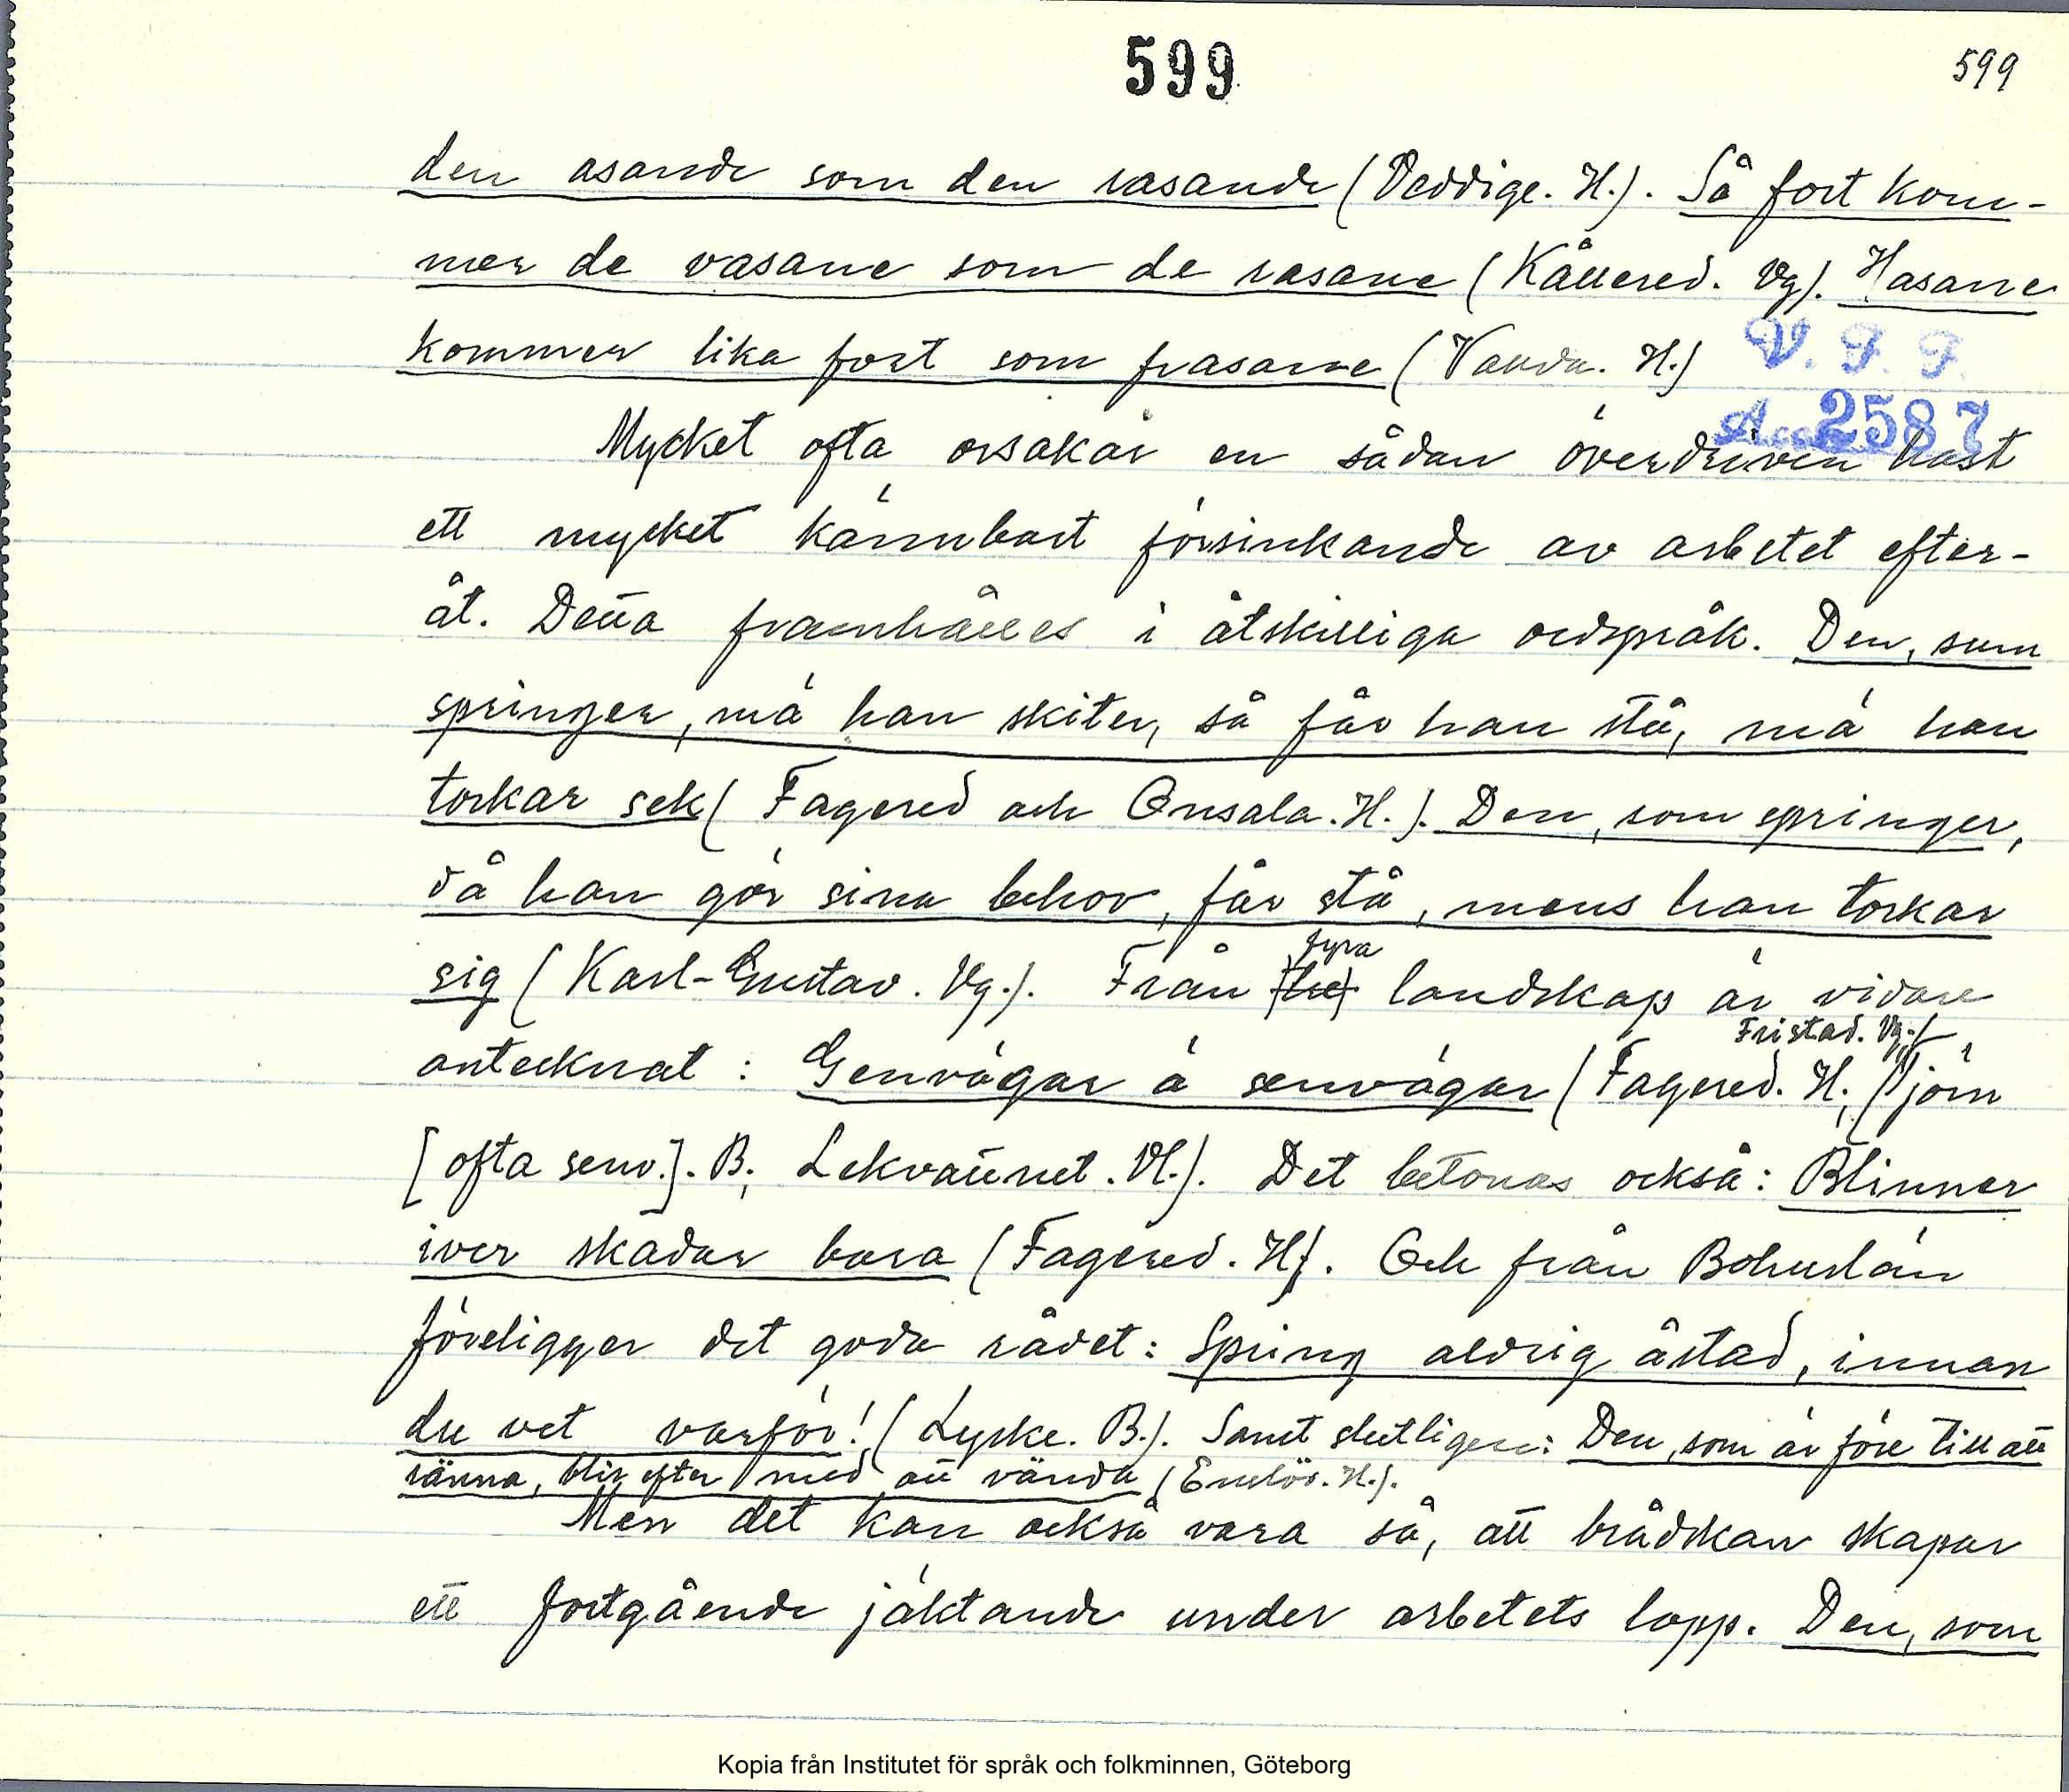 599
599
den asande som den rasande (Veddige. H.). Så fort kom-
mer de vasane som de rasane (Kållered. Vg). Hasarne
kommer lika fort som frasarne (Vanda. H.)
V. F. F.
Acc. 2587
Mycket ofta orsakar en sådan överdriven hast
ett mycket kännbart försinkande av arbetet efter-
åt. Detta framhålles i åtskilliga ordspråk. Den, sum
springer, mä han skiter, så får han stå, mä han
torkar sek (Fagered och Onsala. H.). Den, som springer,
då han gör sina behov, får stå, mens han torkar
fyra
sig (Karl-Gustav. Vg.). Från tre landskap är vidare
Fristad. Vg.
antecknat: Genvägar ä senvägar (Fagered. H.; Tjörn
[ofta senv.]. B; Lekvattnet. Vl.). Det betonas också: Blinner
iver skadar bara (Fagered. H). Och från Bohuslän
föreligger det goda rådet: Spring aldrig åstad, innan
du vet varför! (Lyske. B.). Samt slutligen: Den, som är före till att
ränna, blir efter med att vända (Enslöv. H.).
Men det kan också vara så, att brådskan skapar
ett fortgående jäktande under arbetets lopp. Den, som
Kopia från Institutet för språk och folkminnen, Göteborg